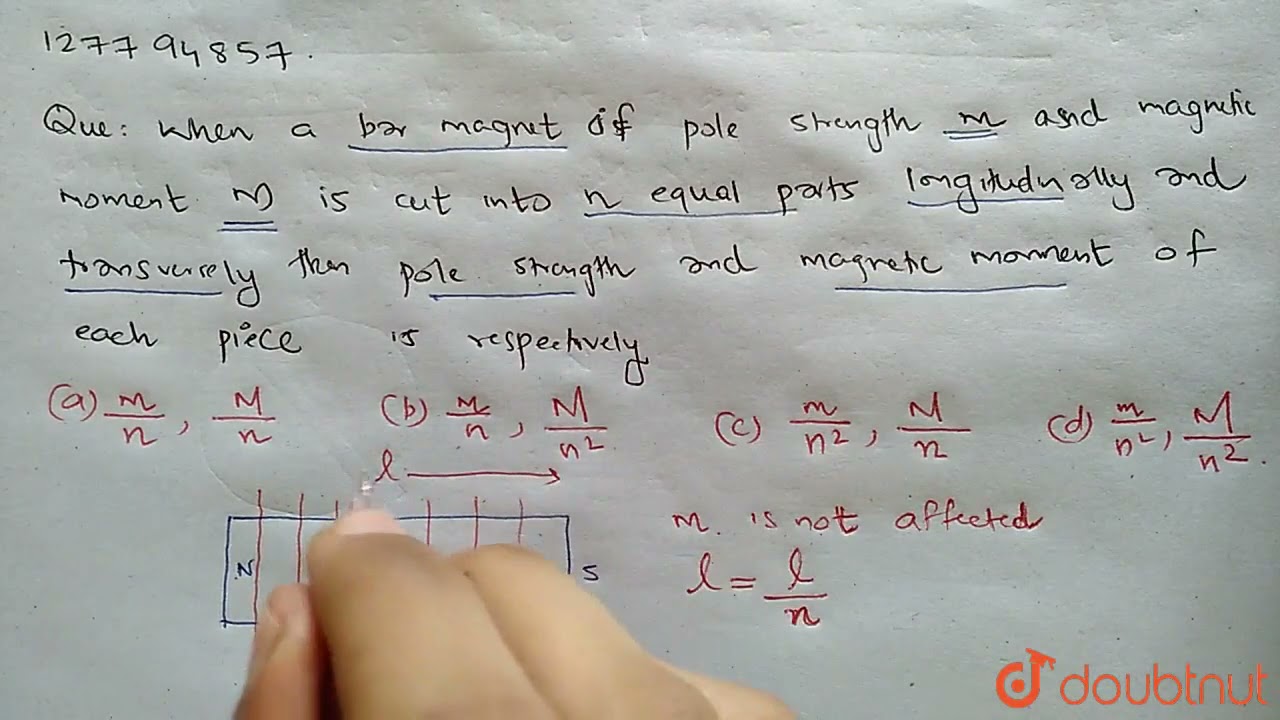 1277 94857.
Que: when a bar magnet of pole strength m and magnetic
moment M is cut into n equal parts longitudinally and
transversely then pole strength and magnetic moment of
each piece is respectively
(a) m/n, M/n (b) m/n, M/n² (c) m/n², M/n (d) m/n², M/n².
l
m is not affected
N S l = l/n
doubtnut